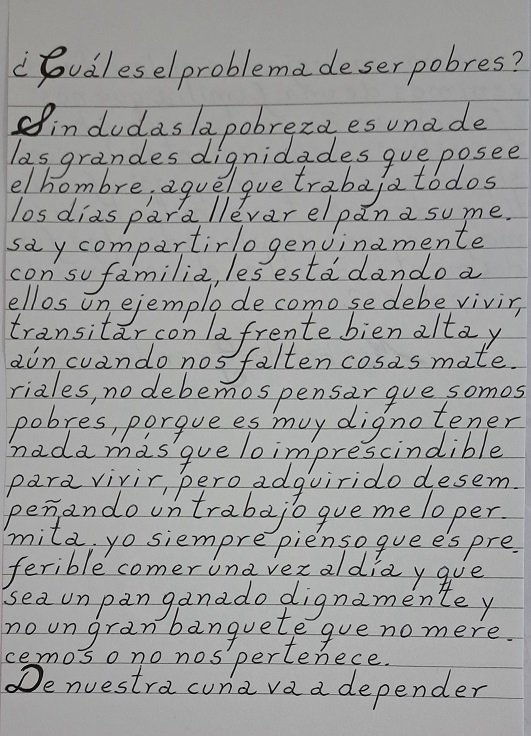 ¿Cuál es el problema de ser pobres?
Sin dudas la pobreza es una de
las grandes dignidades que posee
el hombre. aquél que trabaja todos
los días para llevar el pan a su me.
sa y compartirlo genuinamente
con su familia, les está dando a
ellos un ejemplo de como se debe vivir,
transitar con la frente bien alta y
aún cuando nos falten cosas mate.
riales, no debemos pensar que somos
pobres, porque es muy digno tener
nada más que lo imprescindible
para vivir, pero adquirido desem.
peñando un trabajo que me lo per.
mita. yo siempre pienso que es pre.
ferible comer una vez al día y que
sea un pan ganado dignamente y
no un gran banquete que no mere.
cemos o no nos pertenece.
De nuestra cuna va a depender